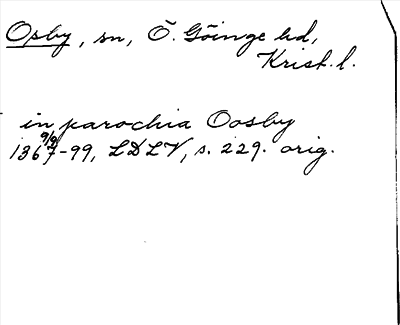 Osby, sn, Ö. Göinge hd,
Krist. l.
in parochia Oosby
9/9
1367-99, LDLV, s. 229. orig.